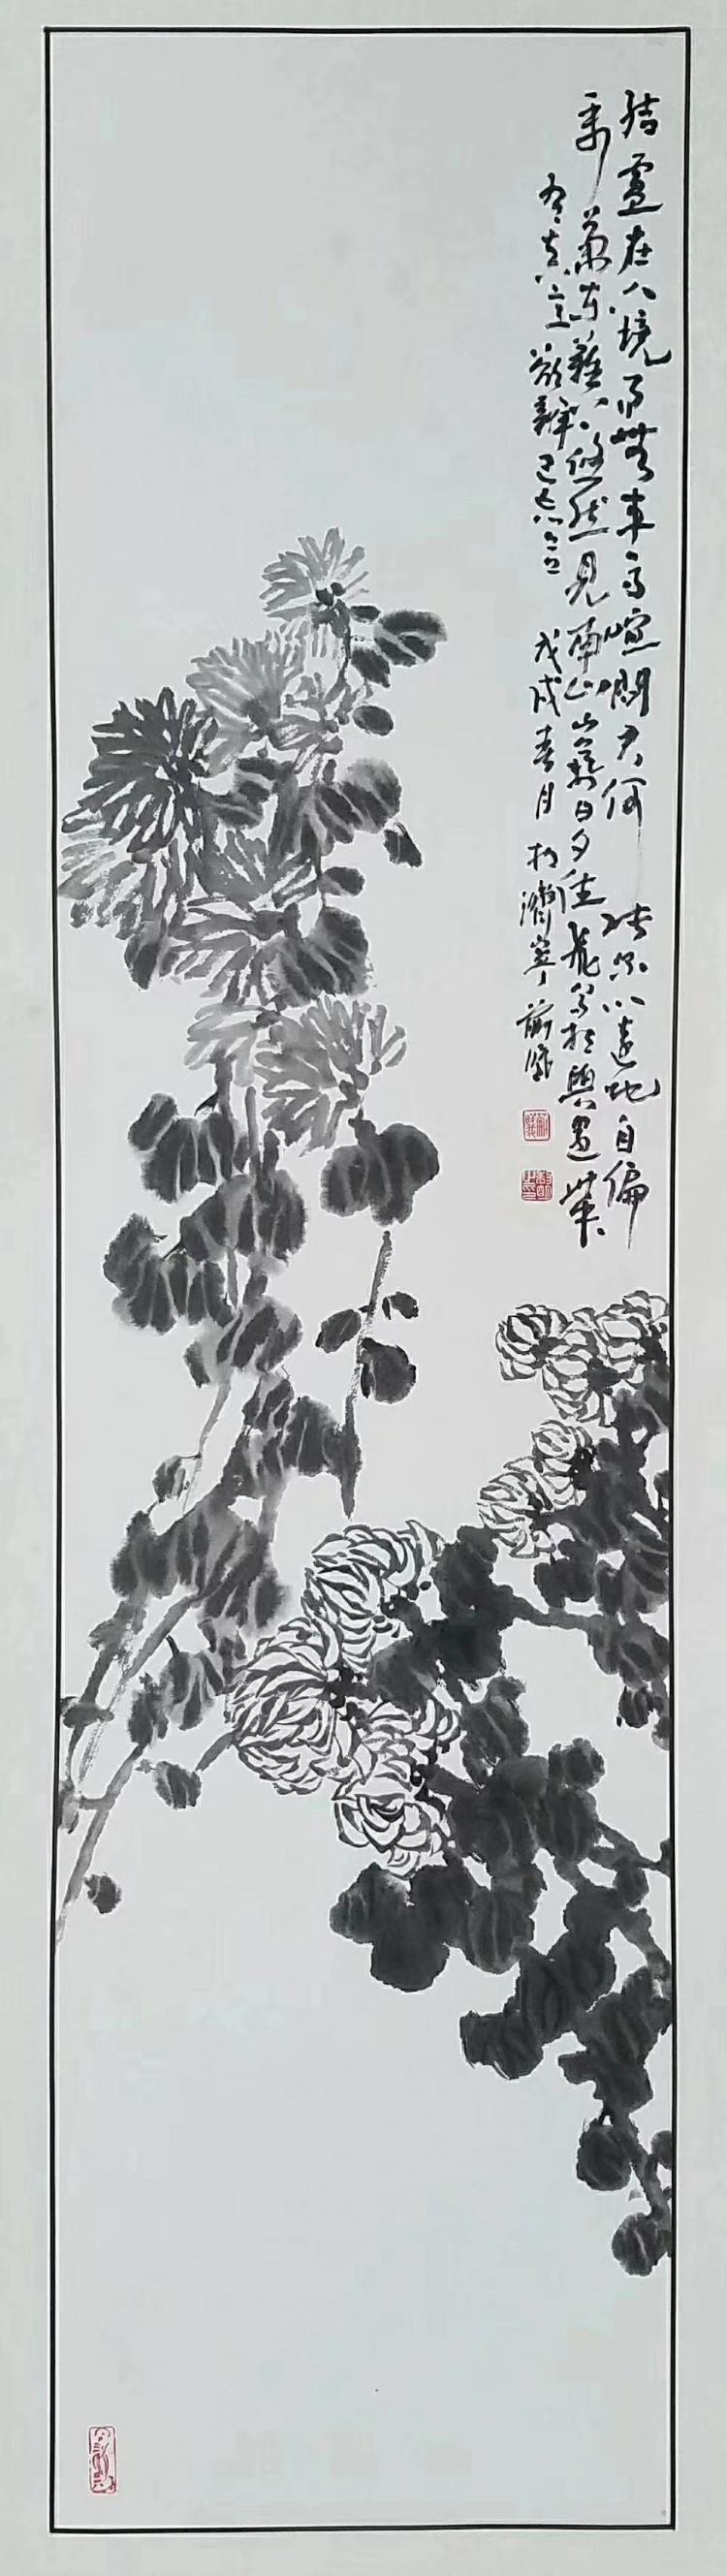 結廬在人境而無車馬喧問君何能尔心遠地自偏
采菊東籬下悠然見南山山氣日夕佳飛鳥相與還此中
有真意欲辨已忘言 戊戌春月於濟寧